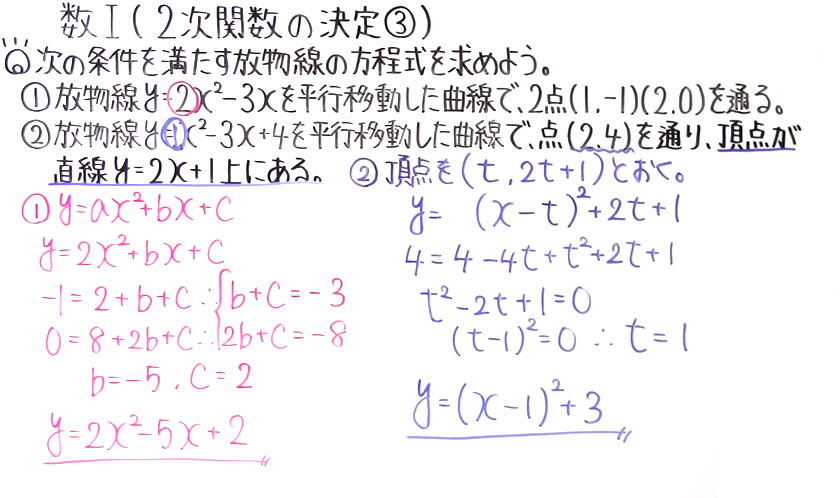 数Ⅰ(2次関数の決定③)
次の条件を満たす放物線の方程式を求めよう。
①放物線y=2x²-3xを平行移動した曲線で、2点(1,-1)(2,0)を通る。
②放物線y=1x²-3x+4を平行移動した曲線で、点(2,4)を通り、頂点が
直線y=2x+1上にある。
①y=ax²+bx+c
y=2x²+bx+c
-1=2+b+c ∴{b+c=-3
0=8+2b+c ∴{2b+c=-8
b=-5, c=2
y=2x²-5x+2
②頂点を(t,2t+1)とおく。
y= (x-t)²+2t+1
4=4-4t+t²+2t+1
t²-2t+1=0
(t-1)²=0 ∴t=1
y=(x-1)²+3